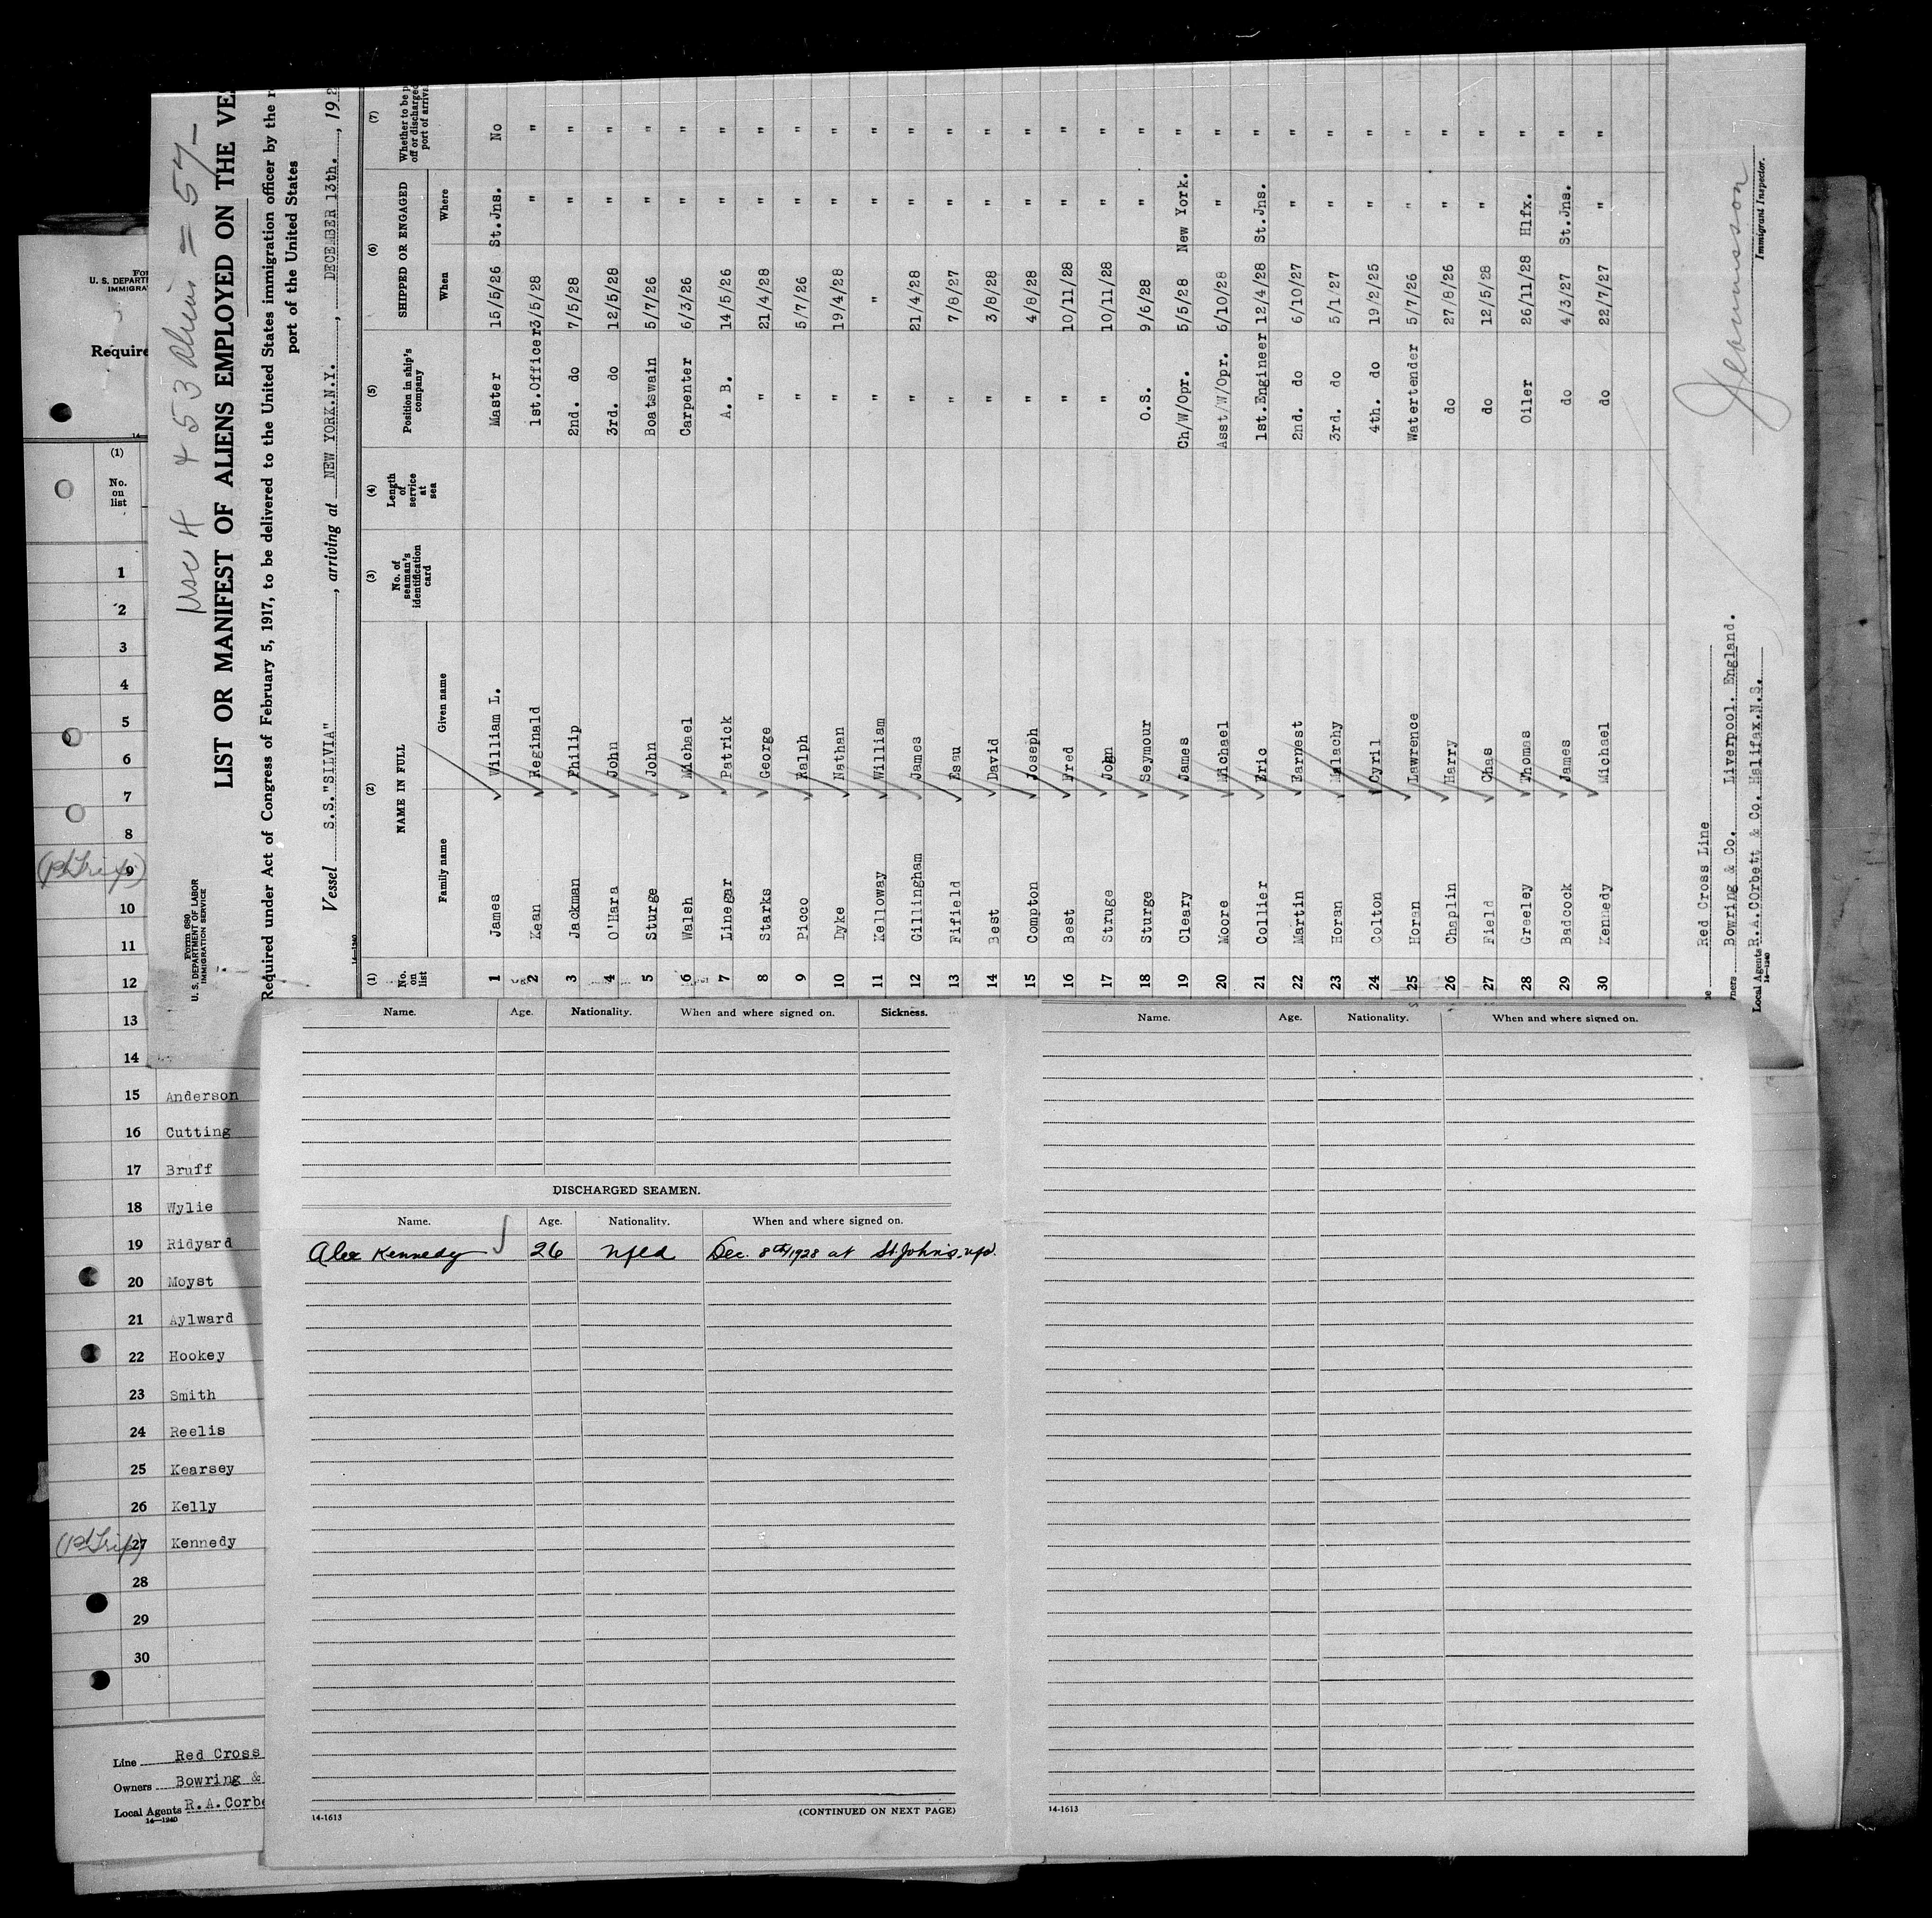 USC 4 + 53 Aliens = 57
Form 680
U. S. DEPARTMENT OF LABOR
IMMIGRATION SERVICE
LIST OR MANIFEST OF ALIENS EMPLOYED ON THE VE
Required under Act of Congress of February 5, 1917, to be delivered to the United States immigration officer by the r
port of the United States
Vessel S.S."SILVIA", arriving at NEW YORK.N.Y., DECEMBER 13th., 192
14-1240
(1) (2) (3) (4) (5) (6) (7)
No. on list NAME IN FULL No. of seaman's identification card Length of service at sea Position in ship's company SHIPPED OR ENGAGED Whether to be p off or discharged port of arriva
Family name Given name When Where
1 James William L. Master 15/5/26 St.Jns. No
2 Kean Reginald 1st.Officer 3/5/28 " "
3 Jackman Philip 2nd. do 7/5/28 " "
4 O'Hara John 3rd. do 12/5/28 " "
5 Sturge John Boatswain 5/7/26 " "
6 Walsh Michael Carpenter 6/3/26 " "
7 Linegar Patrick A. B. 14/5/26 " "
8 Starks George " 21/4/28 " "
9 Picco Ralph " 5/7/26 " "
10 Dyke Nathan " 19/4/28 " "
11 Kelloway William " " " "
12 Gillingham James " 21/4/28 " "
13 Fifield Esau " 7/8/27 " "
14 Best David " 3/8/28 " "
15 Compton Joseph " 4/8/28 " "
16 Best Fred " 10/11/28 " "
17 Struge John " 10/11/28 " "
18 Sturge Seymour O.S. 9/6/28 " "
19 Cleary James Ch/W/Opr. 5/5/28 New York. "
20 Moore Michael Asst/W/Opr. 6/10/28 " "
21 Collier Eric 1st.Engineer 12/4/28 St.Jns. "
22 Martin Earnest 2nd. do 6/10/27 " "
23 Horan Malachy 3rd. do 5/1/27 " "
24 Colton Cyril 4th. do 19/2/25 " "
25 Horan Lawrence Watertender 5/7/26 " "
26 Chaplin Harry do 27/8/26 " "
27 Field Chas do 12/5/28 " "
28 Greeley Thomas Oiler 26/11/28 Hlfx. "
29 Badcock James do 4/3/27 St.Jns. "
30 Kennedy Michael do 22/7/27 " "
Red Cross Line
ners Bowring & Co. Liverpool. England.
Local Agents R.A.Corbett & Co. Halifax.N.S.
14-1240
Immigrant Inspector.
For
U. S. DEPART
IMMIGRA
Require
14-
(1)
No.
on
list
1
2
3
4
5
6
7
8
(1st Trip) 9
10
11
12
13
14
15 Anderson
16 Cutting
17 Bruff
18 Wylie
19 Ridyard
20 Moyst
21 Aylward
22 Hookey
23 Smith
24 Reelis
25 Kearsey
26 Kelly
(1st Trip) 27 Kennedy
28
29
30
Line Red Cross
Owners Bowring &
Local Agents R.A.Corbe
14-1240
Name. Age. Nationality. When and where signed on. Sickness.
DISCHARGED SEAMEN.
Name. Age. Nationality. When and where signed on.
Alex Kennedy 26 Nfld Dec. 8th/1928 at St.John's. Nfd.
14-1613 (CONTINUED ON NEXT PAGE)
Name. Age. Nationality. When and where signed on.
14-1613